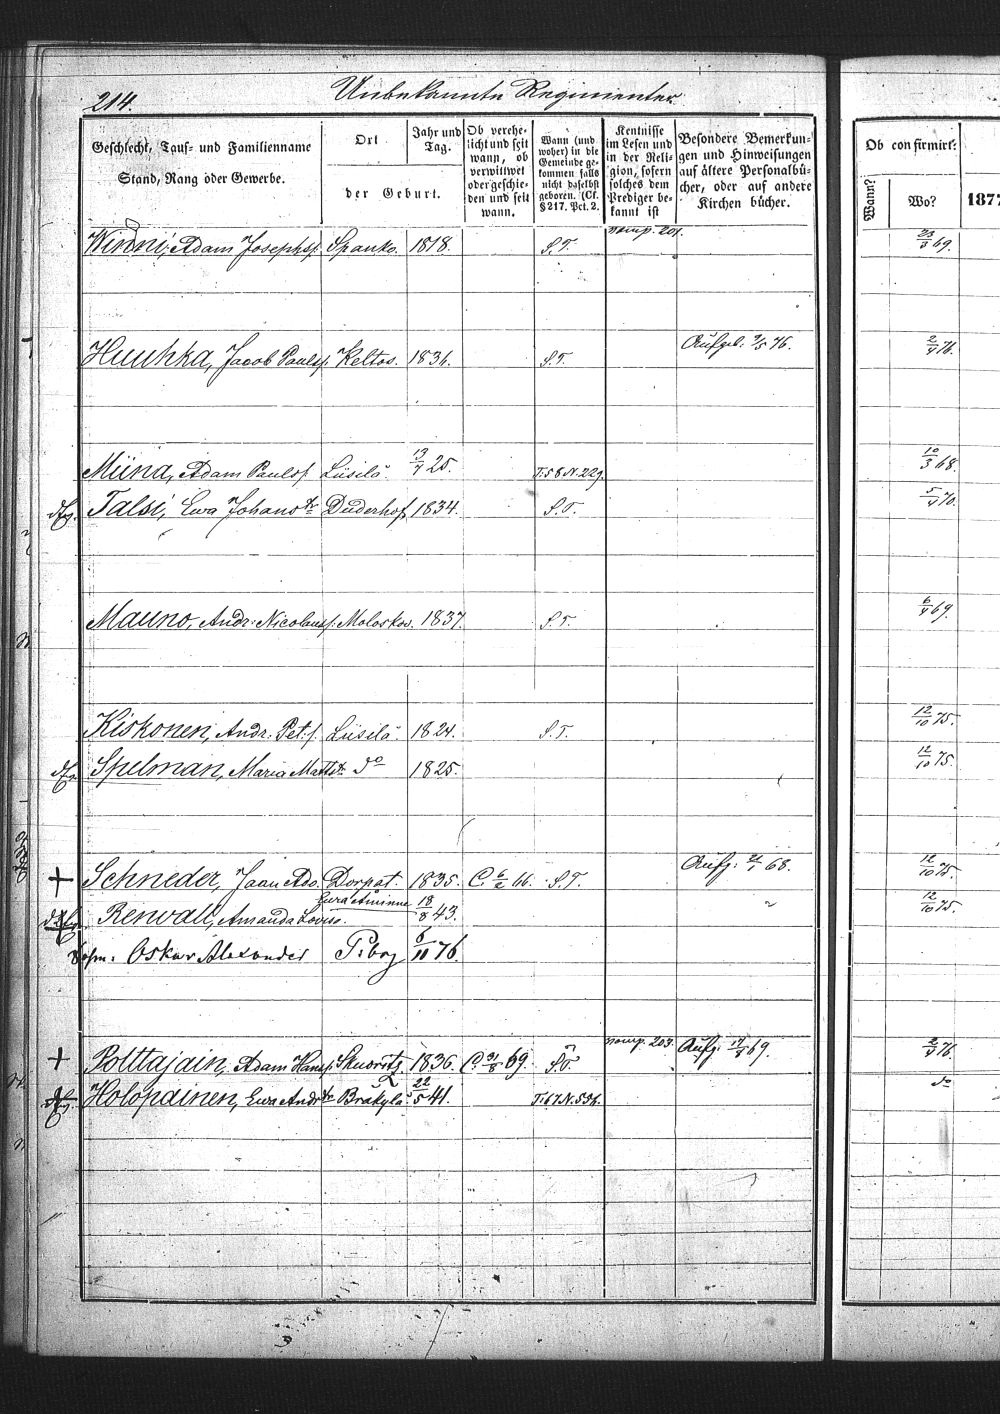 214. Unbekannte Regimenter.
Geschlecht, Tauf- und Familienname
Stand, Rang oder Gewerbe.
Ort
der Geburt.
Jahr und
Tag.
Ob verehe-
licht und seit
wann, ob
verwittwet
oder geschie-
den und seit
wann.
Wann (und
woher) in die
Gemeinde ge-
kommen falls
nicht daselbst
geboren. (Cf.
§ 217. Pct. 2.
Kentnisse
im Lesen und
in der Reli-
gion, sofern
solches dem
Prediger be-
kannt ist
Besondere Bemerkun-
gen und Hinweisungen
auf ältere Personalbü-
cher, oder auf andere
Kirchen bücher.
Ob confirmirt:
Wann?
Wo?
1877
Winni, Adam Josephs. Spanko. 1818. S.T. 201. 69.
Huuhka, Jacob Pauls. Keltos. 1836. S.T. Aufgeb. 76. 2/4 76.
Miina, Adam Pauls. Liisilä. 13/7 25. T. 58 N. 229. 10/3 68.
Talsi, Ewa Johans Duderhof 1834. S.T. 5/4 70.
Mauno, Andr: Nicolaus. Moloskov. 1837. S.T. 6/4 69.
Kiskonen, Andr. Pet. Liisilä. 1824. S.T. 12/10 75.
Spelman, Maria Matts do 1825. 12/10 75.
+ Schneder, Jaan Ado. Dorpat. 1835. C. 6/2 66. S.T. Aufg: 21/1 68. 12/10 75.
Renvall, Amanda Lovisa. Eura Åminne 18/8 43. " 12/10 75.
Sohn: Oskar Alexander P:borg 6/11 76.
+ Polttajain, Adam Hans. Skuoritz 1836. C. 31/8 69. S.T. 203. Aufg: 17/8 69. 2/4 76.
Holopainen, Ewa Andr. 22/5 41. T. 67 N. 554. do